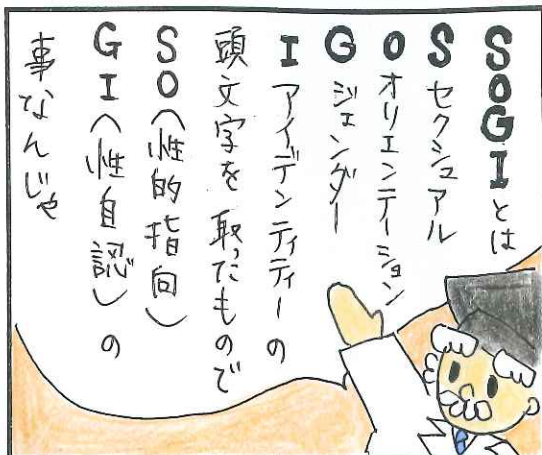 SOGIとは
Sセクシュアル
Oオリエンテーション
Gジェンダー
Iアイデンティティーの
頭文字を取ったもので
SO(性的指向)
GI(性自認)の
事なんじゃ